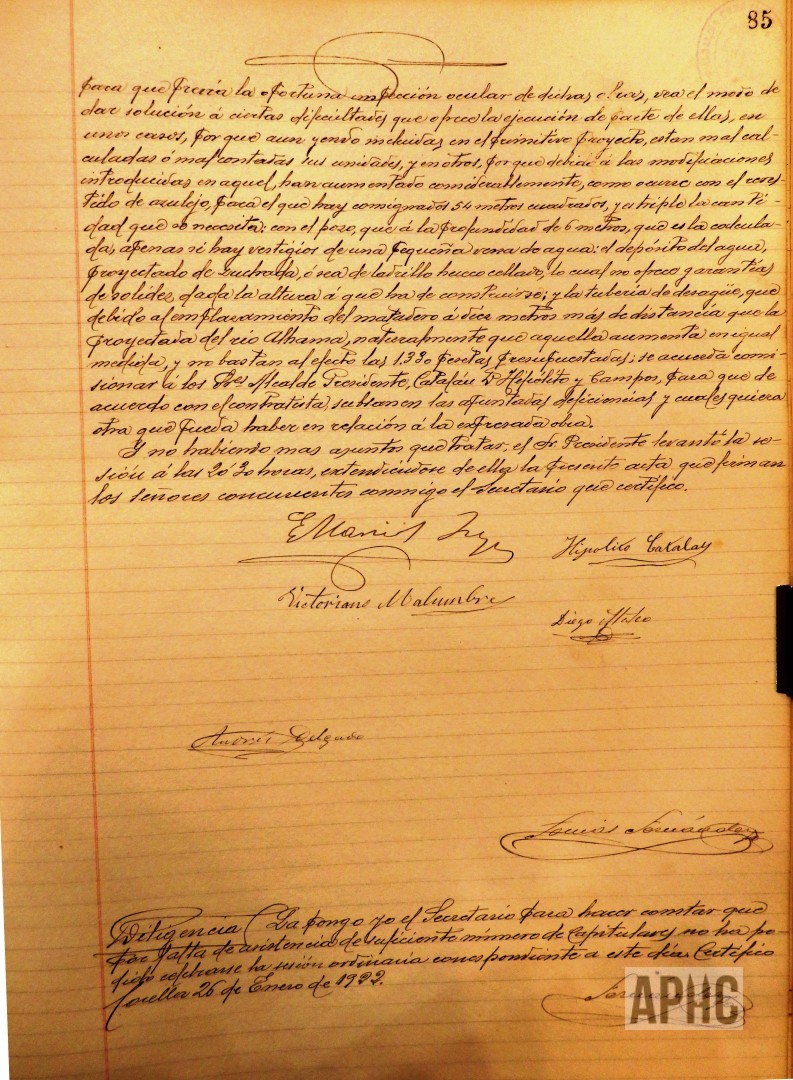 85
para que previa la oportuna inspección ocular de dichas obras, vea el modo de
dar solución á ciertas dificultades que ofrece la ejecución de parte de ellas, en
unos casos, por que aun yendo incluidas en el primitivo proyecto, estan mal cal-
culadas ó mal contadas sus unidades, y en otros, por que debido á las modificaciones
introducidas en aquel, han aumentado considerablemente, como ocurre con el reves-
tido de azulejo, para el que hay consignados 54 metros cuadrados, y es triple la canti-
dad que se necesita; con el pozo, que á la profundidad de 6 metros, que es la calcula-
da, apenas si hay vestigios de una pequeña vena de agua; el depósito del agua,
proyectado de ó sea de ladrillo hueco lo cual no ofrece garantías
de solidez, dada la altura á que ha de construirse; y la tubería de desagüe, que
debido al emplazamiento del matadero á doce metros más de distancia que la
proyectada del río Alhama, naturalmente que aquella aumenta en igual
medida, y no bastan al efecto las 1.330 pesetas presupuestadas; se acuerda comi-
sionar á los Sres Alcalde Presidente, Catalán Dn Hipólito y Campos, para que de
acuerdo con el contratista, subsanen las apuntadas deficiencias y cualesquiera
otra que pueda haber en relación á la expresada obra.
Y no habiendo mas asuntos que tratar, el Sr. Presidente levantó la se-
sión á las 20'30 horas, extendiendose de ella la presente acta que firman
los señores concurrentes conmigo el Secretario que certifico.
Hipolito Catalan
Victoriano Malumbres
Diego
Andrés Delgado
Fernández
Diligencia La pongo yo el Secretario para hacer constar que
por falta de asistencia de suficiente número de Capitulares no ha po-
dido celebrarse la sesión ordinaria correspondiente á este día. Certifico
Corella 26 de Enero de 1922.
Fernández
APHC